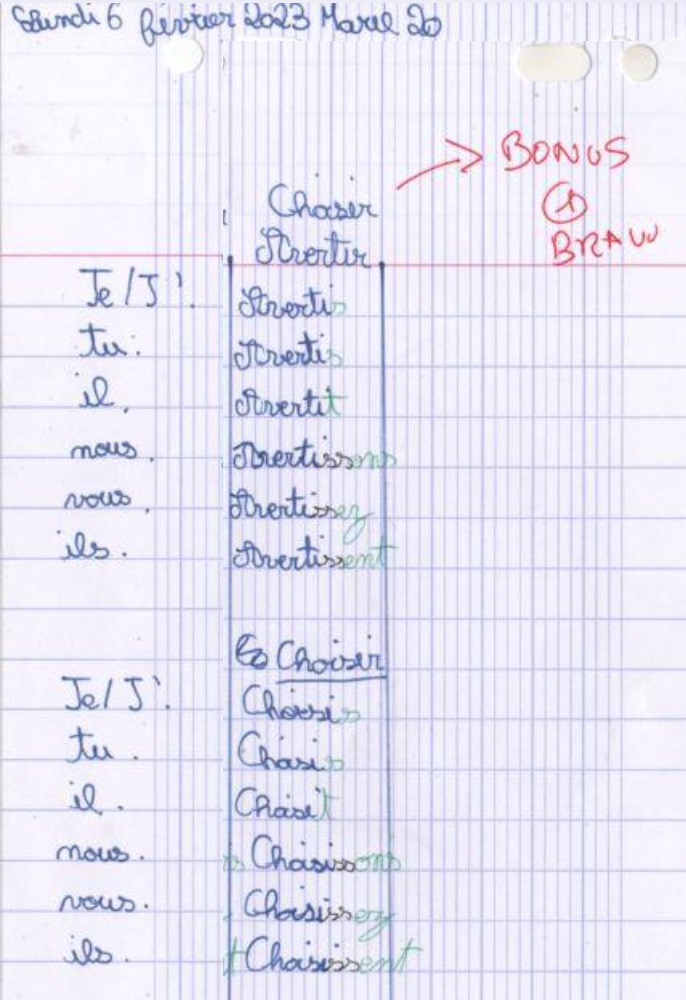 Lundi 6 février 2023 Marie 20
BONUS
Choisir
1
Avertir
BRAVO
Je/J' Avertis
tu. Avertis
il. Avertit
nous. Avertissons
vous. Avertissez
ils. Avertissent
Choisir
Je/J'. Choisis
tu. Choisis
il. Choisit
nous. s Choisissons
vous. Choisissez
ils. t Choisissent